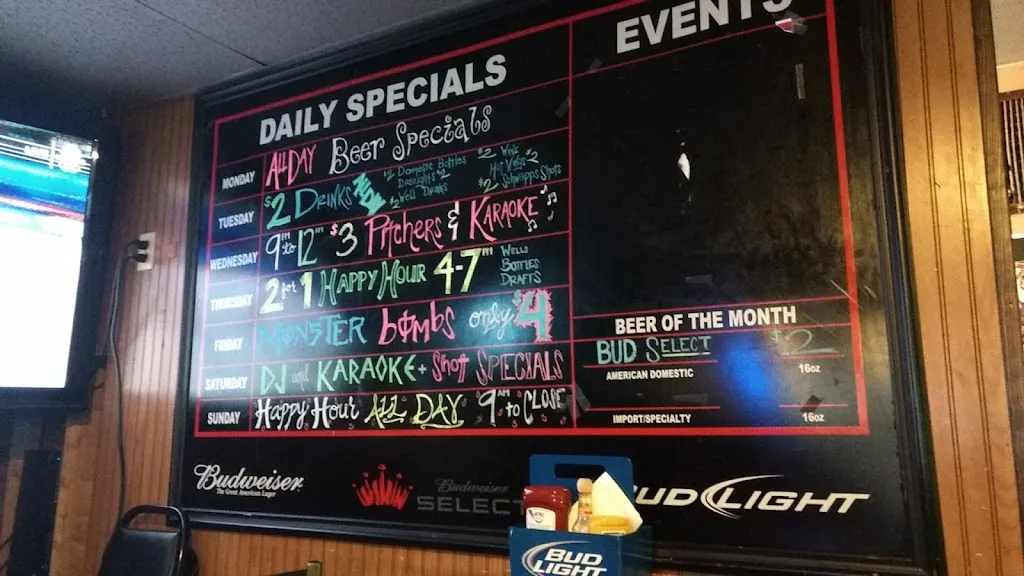 DAILY SPECIALS
EVENTS
MONDAY ALL DAY Beer Specials
TUESDAY $2 DRINKS
$2 Domestic Bottles
$2 Well Drinks
$2 Schnapps Shots
WEDNESDAY 9PM to 12AM $3 Pitchers & KARAOKE
THURSDAY 2 for 1 HAPPY HOUR 4-7PM
WELLS
BOTTLES
DRAFTS
FRIDAY MONSTER bOmbs only $4
SATURDAY DJ and KARAOKE + Shot SPECIALS
SUNDAY Happy Hour ALL DAY 9AM to CLOSE
BEER OF THE MONTH
BUD SELECT $2
AMERICAN DOMESTIC 16oz
IMPORT/SPECIALTY 16oz
Budweiser
The Great American Lager
Budweiser
SELECT
BUD LIGHT
BUD
LIGHT